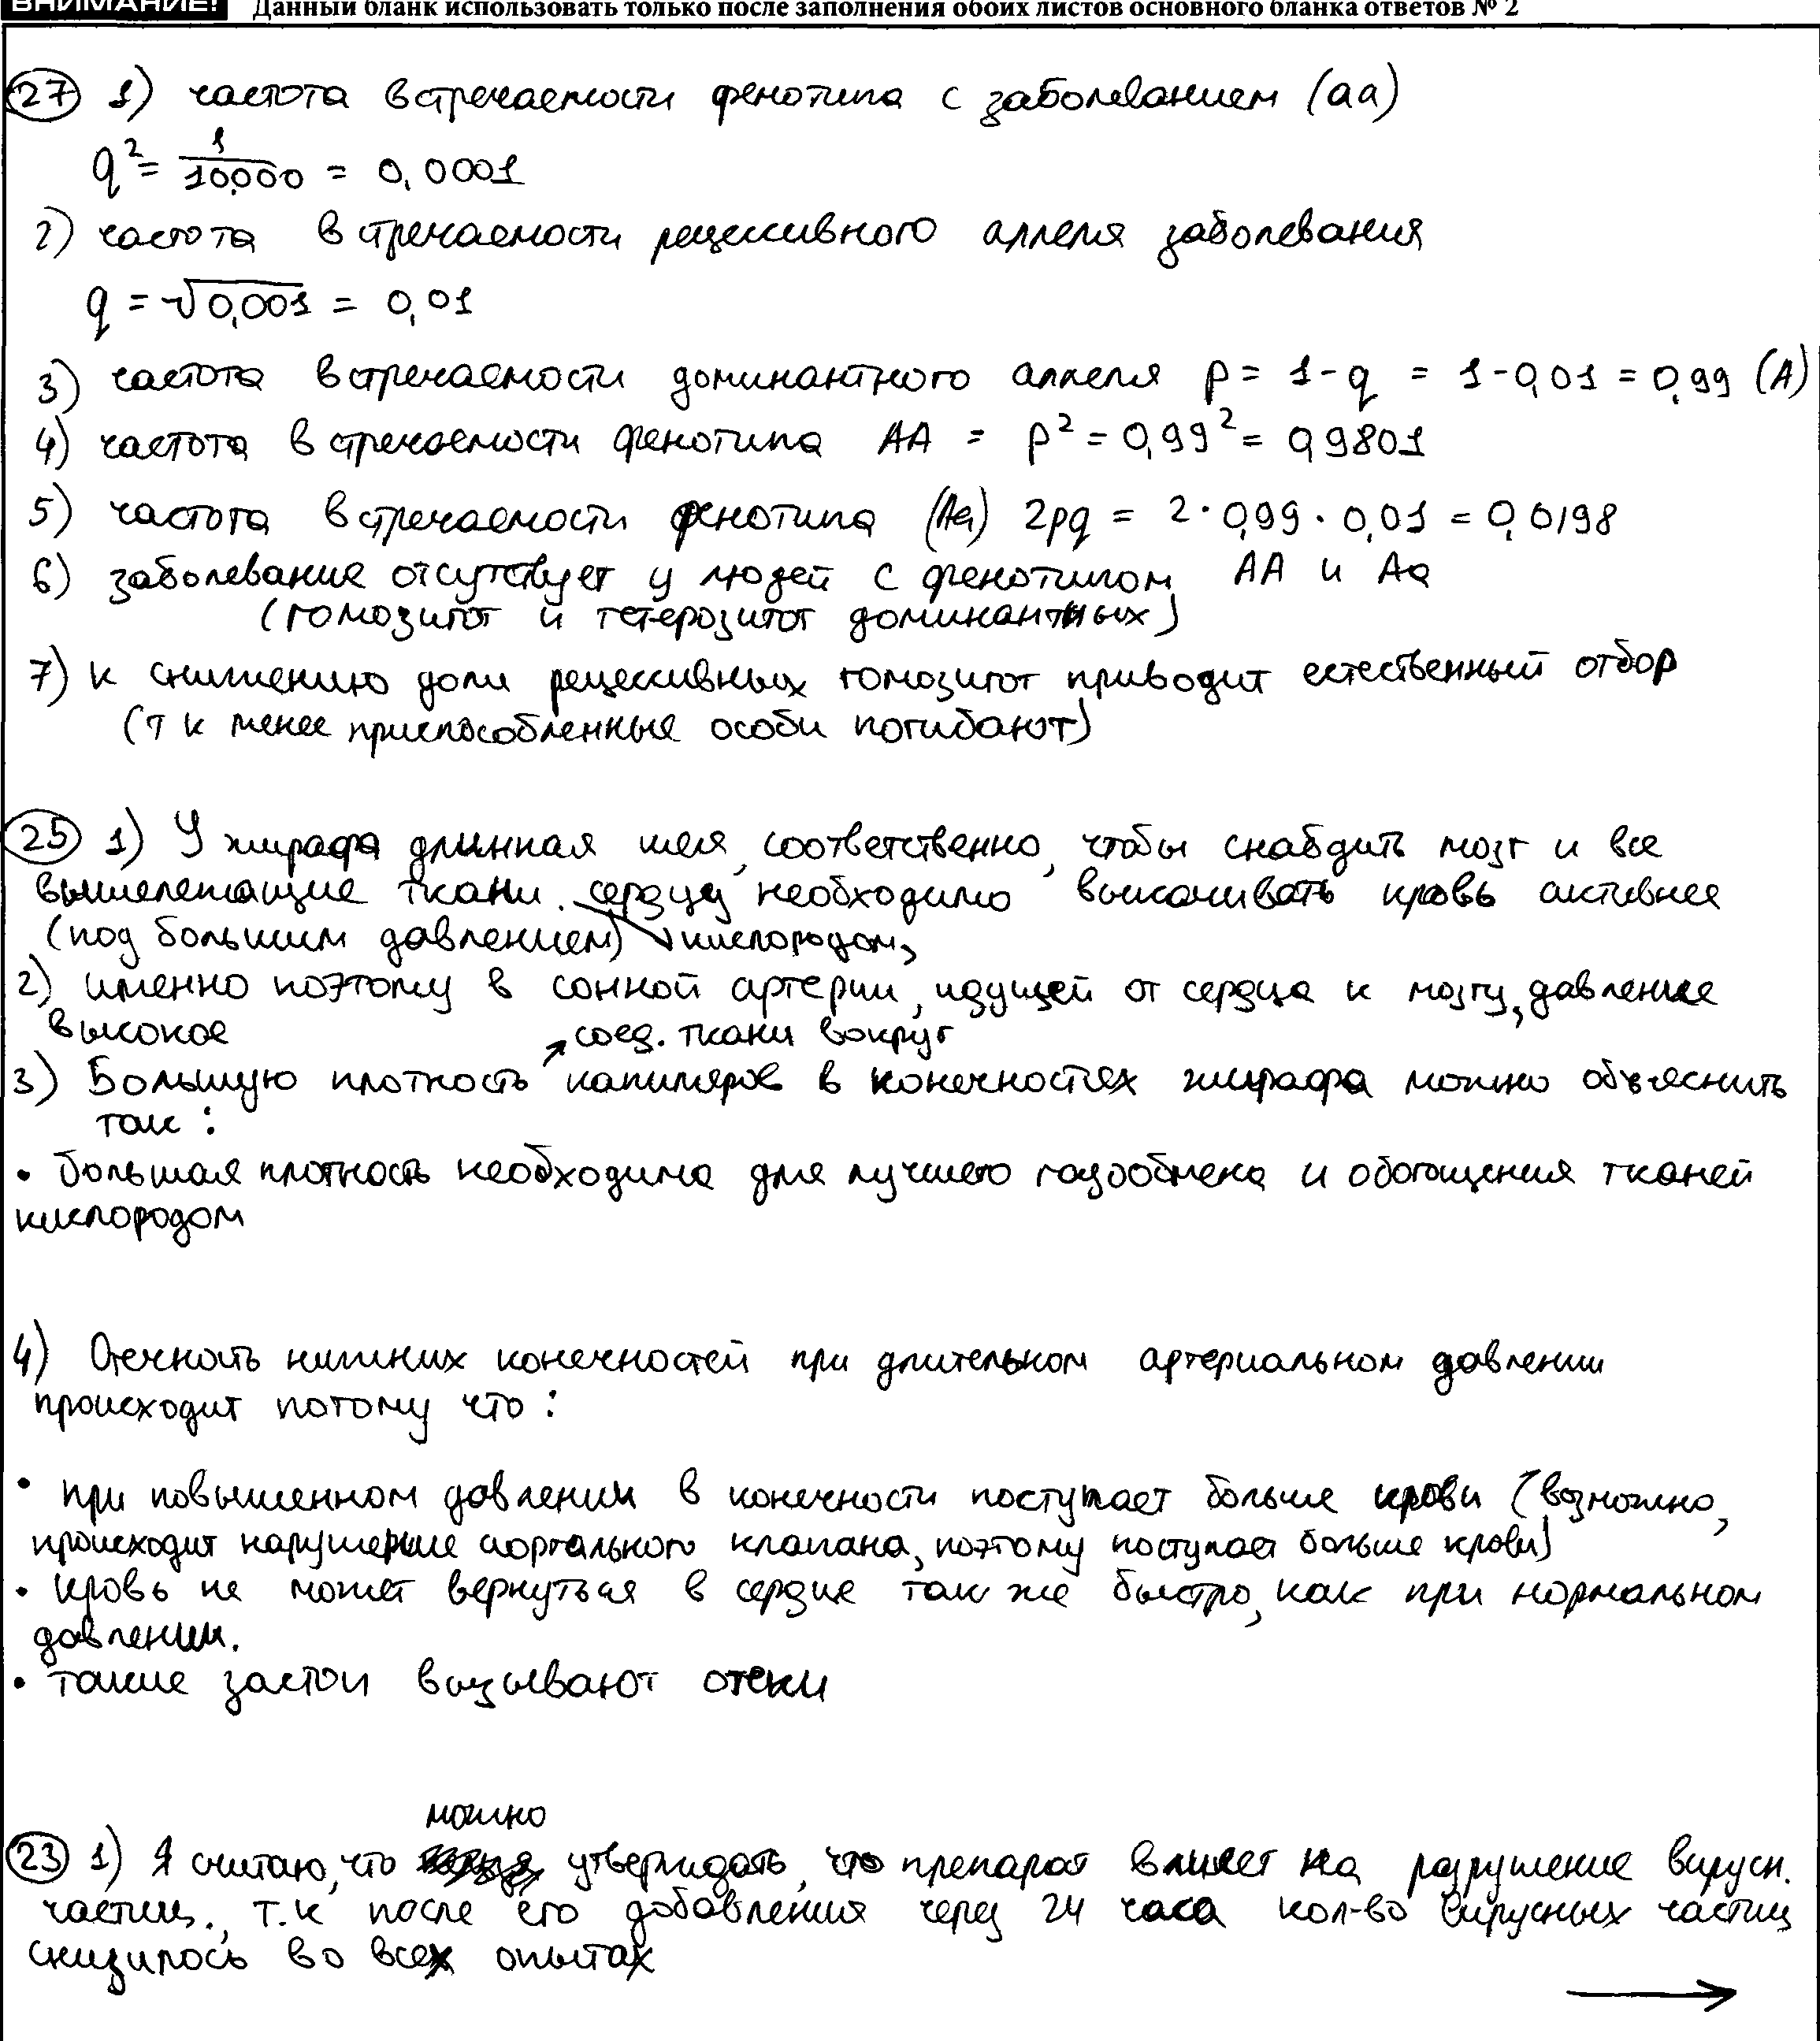 ВНИМАНИЕ! Данный бланк использовать только после заполнения обоих листов основного бланка ответов № 2
27 1) частота встречаемости фенотипа с заболеванием (аа)
q² = 1/10.000 = 0,0001
2) частота встречаемости рецессивного аллеля заболевания
q = √0,001 = 0,01
3) частота встречаемости доминантного аллеля p = 1 - q = 1 - 0,01 = 0,99 (A)
4) частота встречаемости фенотипа AA = p² = 0,99² = 0,9801
5) частота встречаемости фенотипа (Aa) 2pq = 2 · 0,99 · 0,01 = 0,0198
6) заболевание отсутствует у людей с фенотипом AA и Aa
(гомозигот и гетерозигот доминантных)
7) к снижению доли рецессивных гомозигот приводит естественный отбор
(т к менее приспособленные особи погибают)
25 1) У жирафа длинная шея, соответственно, чтобы снабдить мозг и все
вышележащие ткани. сердцу необходимо выкачивать кровь активнее
(под большим давлением) кислородом,
2) именно поэтому в сонной артерии, идущей от сердца к мозгу, давление
высокое
соед. ткани вокруг
3) Большую плотность капилляров в конечностях жирафа можно объяснить
так:
• большая плотность необходима для лучшего газообмена и обогащения тканей
кислородом
4) Отечность нижних конечностей при длительном артериальном давлении
происходит потому что:
• при повышенном давлении в конечности поступает больше крови (возможно,
происходит нарушение аортального клапана, поэтому поступает больше крови)
• кровь не может вернуться в сердце так же быстро, как при нормальном
давлении.
• такие застои вызывают отеки
можно
23 1) Я считаю, что утверждать, что препарат влияет на разрушение вирусн.
частиц., т.к после его добавления через 24 часа кол-во вирусных частиц
снизилось во всех опытах